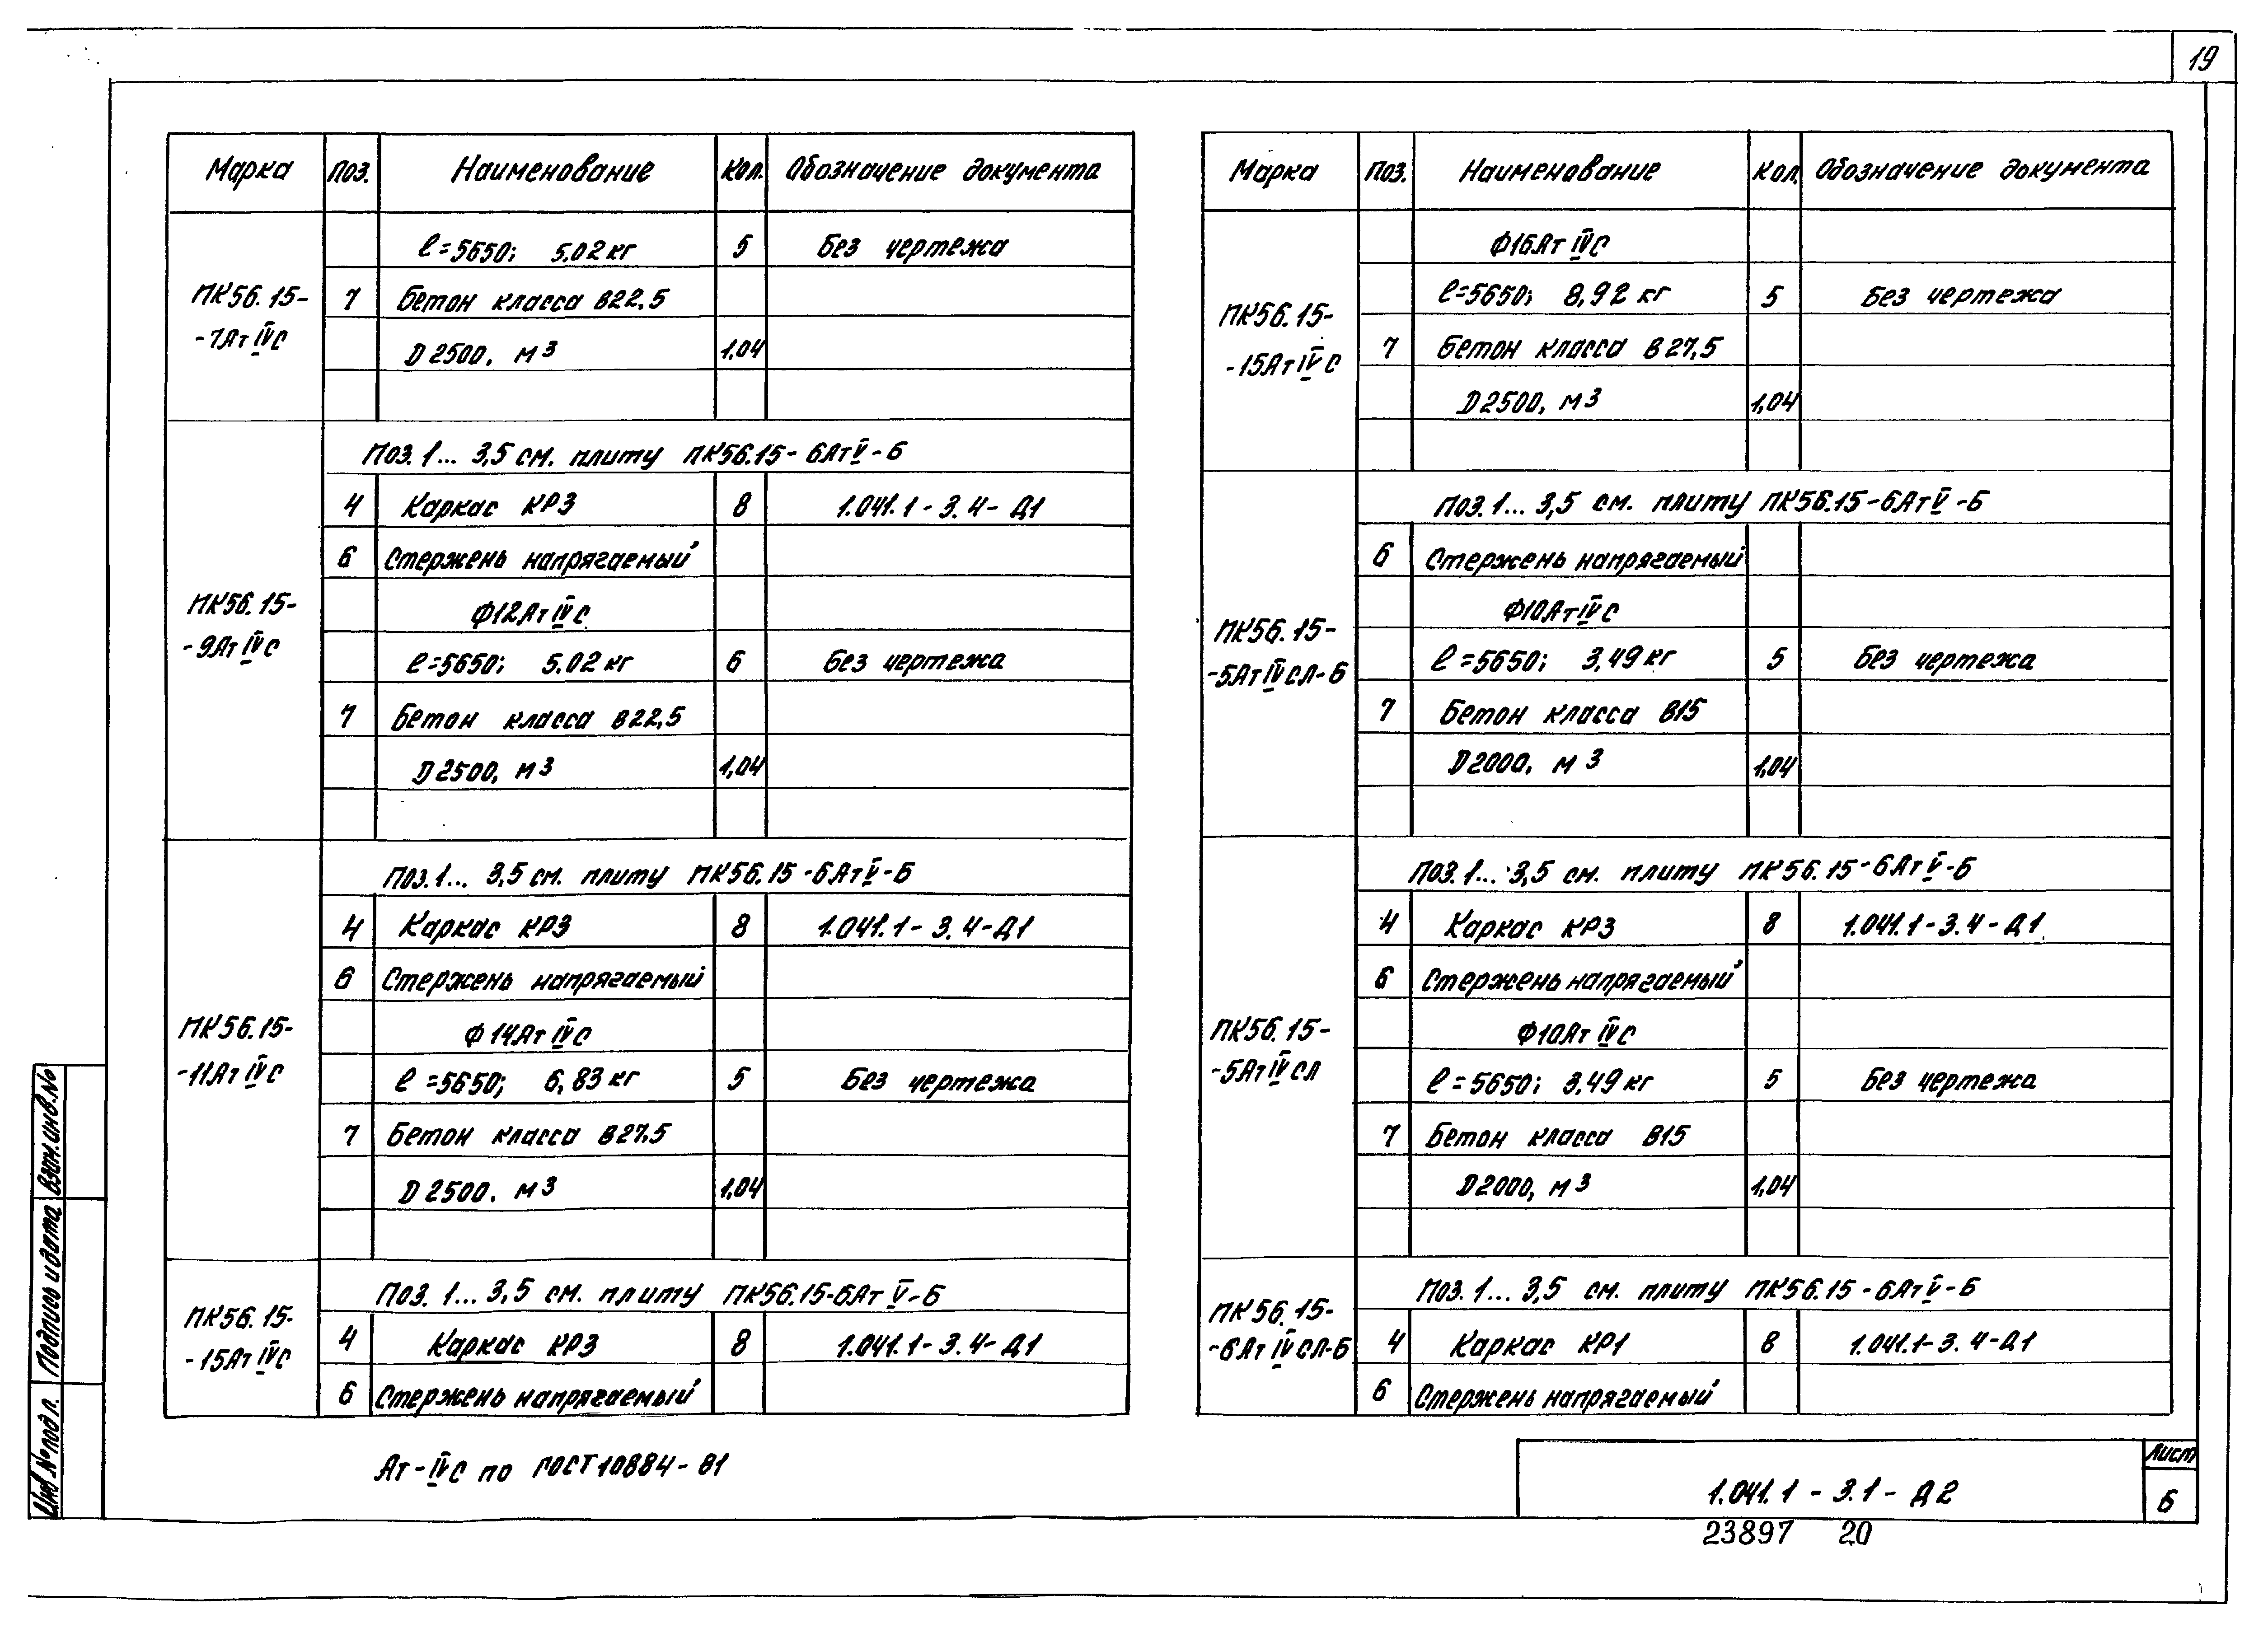 19
Марка Поз. Наименование Кол. Обозначение документа
ПК56.15-
-7АтIVС
ℓ=5650; 5.02кг 5 Без чертежа
7 Бетон класса В22,5
D2500, м3 1,04
Поз. 1... 3,5 см. плиту ПК56.15-6АтV-Б
ПК56.15-
-9АтIVС
4 Каркас КР3 8 1.041.1-3.4-Д1
6 Стержень напрягаемый
Ф12АтIVС
ℓ=5650; 5.02кг 6 Без чертежа
7 Бетон класса В22,5
D2500, м3 1,04
Поз. 1... 3,5 см. плиту ПК56.15-6АтV-Б
ПК56.15-
-11АтIVС
4 Каркас КР3 8 1.041.1-3.4-Д1
6 Стержень напрягаемый
Ф14АтIVС
ℓ=5650; 6,83кг 5 Без чертежа
7 Бетон класса В27.5
D2500. м3 1,04
Поз. 1... 3,5 см. плиту ПК56.15-6АтV-Б
ПК56.15-
-15АтIVС
4 Каркас КР3 8 1.041.1-3.4-Д1
6 Стержень напрягаемый
Марка Поз. Наименование Кол. Обозначение документа
ПК56.15-
-15АтIVС
Ф16АтIVС
ℓ=5650; 8,92кг 5 Без чертежа
7 Бетон класса В27,5
D2500, м3 1,04
Поз. 1... 3,5 см. плиту ПК56.15-6АтV-Б
ПК56.15-
-5АтIVСЛ-Б
6 Стержень напрягаемый
Ф10АтIVС
ℓ=5650; 3,49кг 5 Без чертежа
7 Бетон класса В15
D2000, м3 1,04
Поз. 1... 3,5 см. плиту ПК56.15-6АтV-Б
ПК56.15-
-5АтIVСЛ
4 Каркас КР3 8 1.041.1-3.4-Д1
6 Стержень напрягаемый
Ф10АтIVС
ℓ=5650; 3.49кг 5 Без чертежа
7 Бетон класса В15
D2000, м3 1,04
Поз. 1... 3,5 см. плиту ПК56.15-6АтV-Б
ПК56.15-
-6АтIVСЛ-Б
4 Каркас КР1 8 1.041.1-3.4-Д1
6 Стержень напрягаемый
Ат-IVС по ГОСТ10884-81
1.041.1-3.1-Д2
Лист
6
23897 20
Инв № подл. Подпись и дата Взам.инв.№